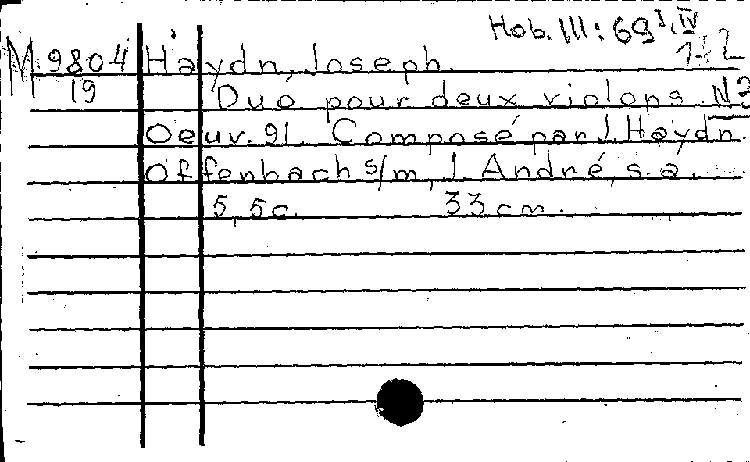 Hob. III: 69 I, IV
M. 9804 Haydn, Joseph. 1-2
19 Duo pour deux violons. N3
Oeuv. 91. Composé par J. Haydn.
Offenbach s/m, J. André, s. a.
5, 5 c. 33 cm.